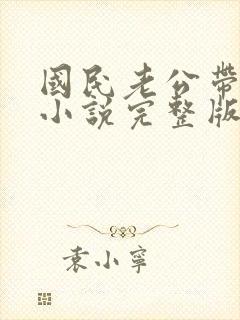 國民老公帶
小說完整版
袁小寧